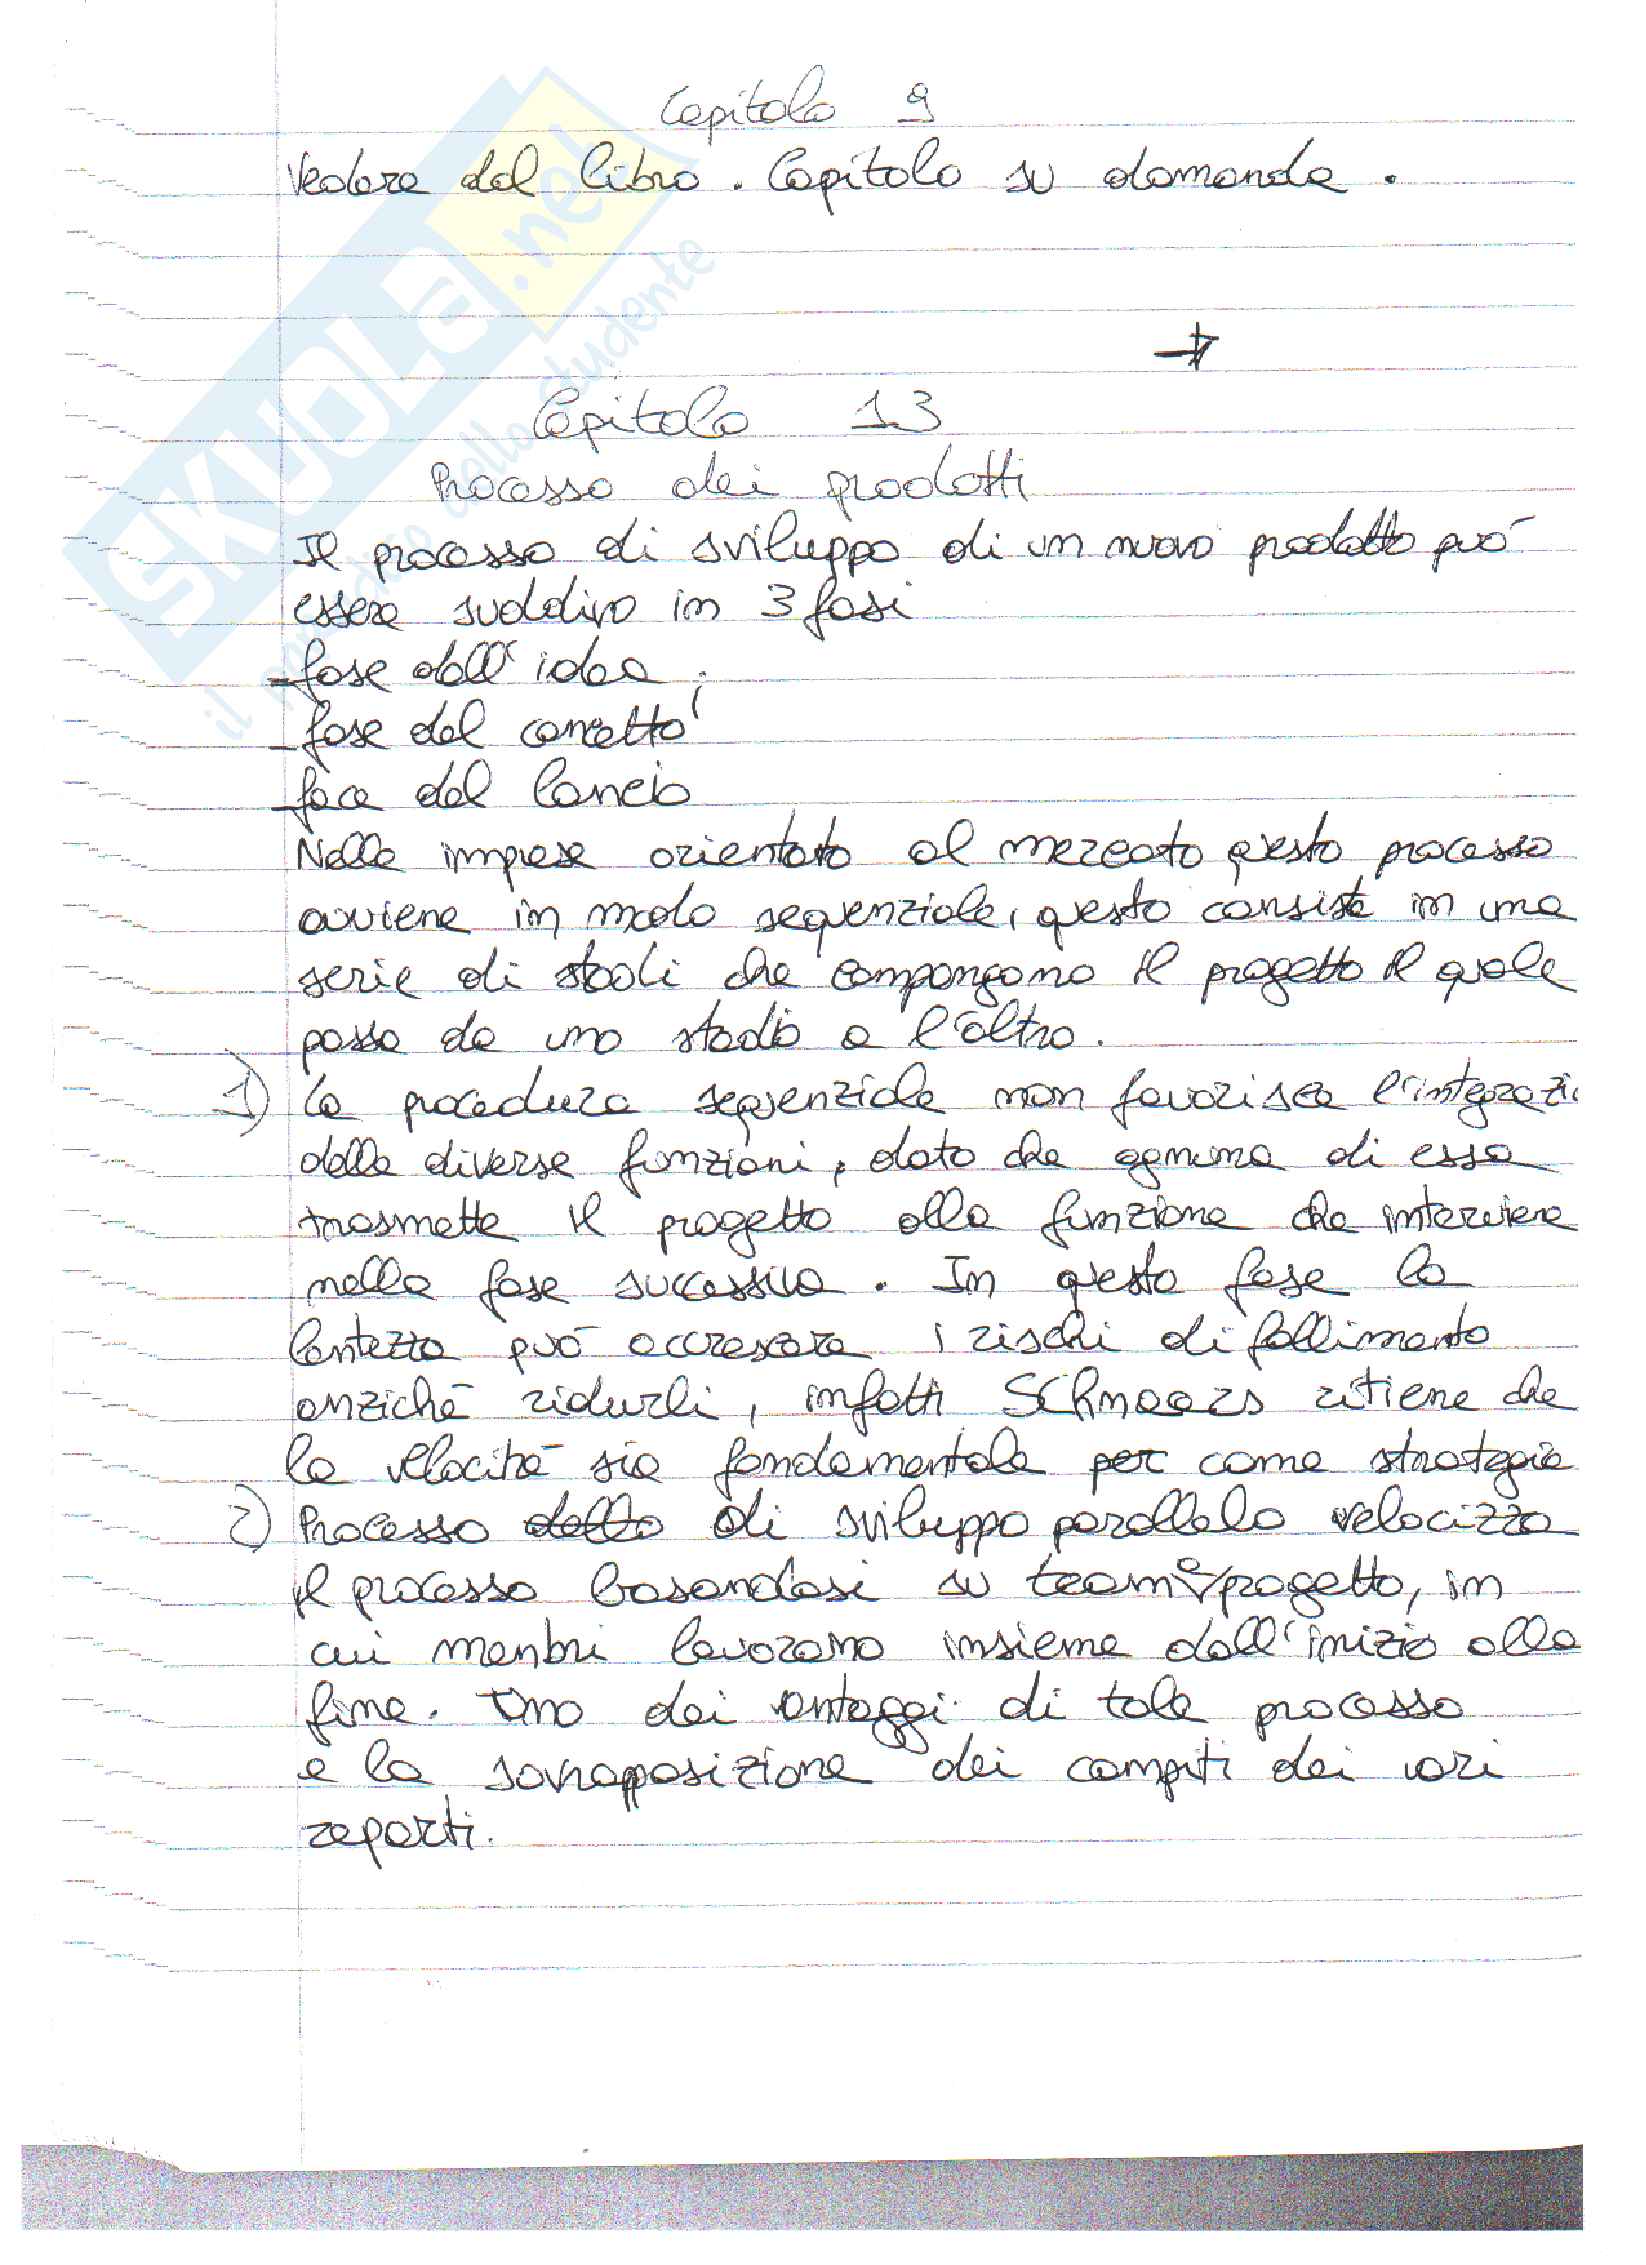 Capitolo 9
Vedere dal libro. Capitolo su domanda.
Capitolo 13
Processo dei prodotti
Il processo di sviluppo di un nuovo prodotto può
essere suddivo in 3 fasi
- fase dell'idea;
- fase del concetto
- face del lancio
Nelle imprese orientato al mercato questo processo
avviene in modo sequenziale, questo consiste in una
serie di stadi che compongono il progetto il quale
passa da uno stadio a l'altro.
1) La procedura sequenziale non favorisce l'integrazio
delle diverse funzioni, dato che ognuna di esse
trasmette il progetto alla funzione che interviene
nella fase successiva. In questa fase la
lentezza può accrescere i rischi di fallimento
anziché ridurli, infatti Schnaars ritiene che
la velocità sia fondamentale per come strategia
2) Processo dello di sviluppo parallelo velocizza
il processo basandosi su team e progetto, in
cui menbri lavorano insieme dall'inizio alla
fine. Uno dei vantaggi di tale processo
e la sovrapposizione dei compiti dei vari
reparti.
SKUOLA.net
il paradiso dello studente